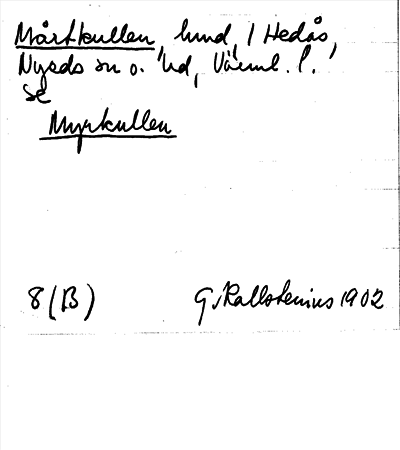 Mårtkullen, lund, / Hedås,
Nyeds sn o. hd, Värml. l.
se
Myrkullen
8 (B) G. Kallstenius 1902